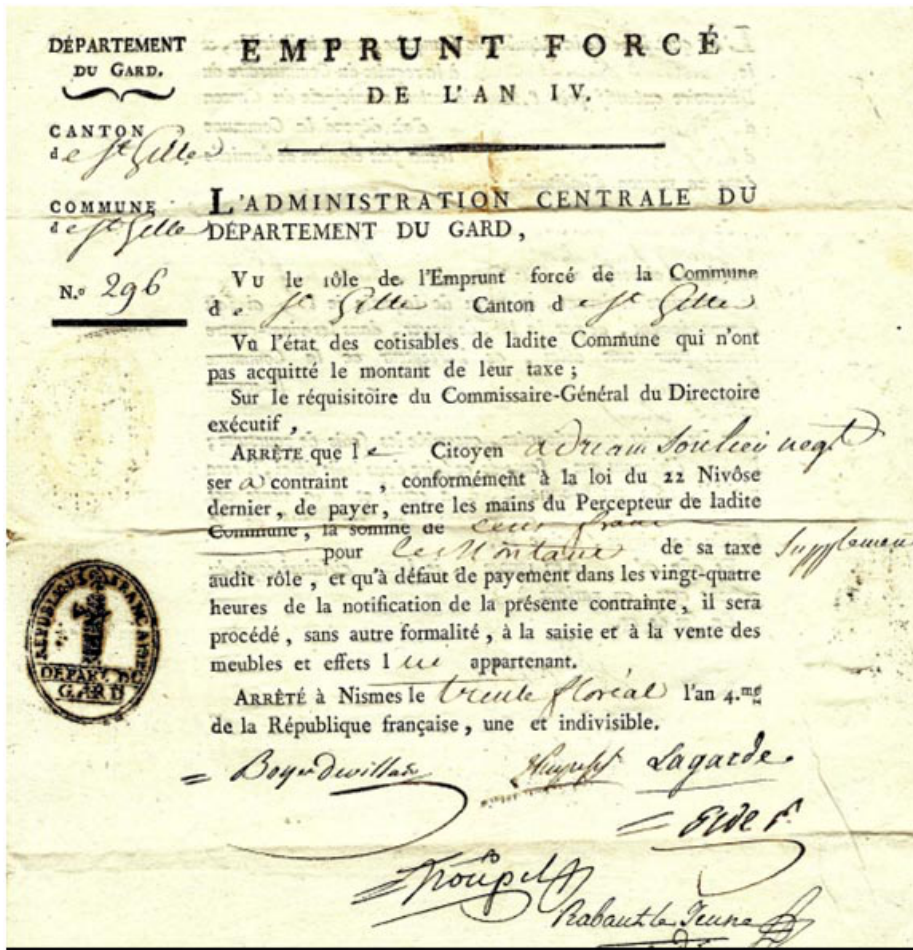 DÉPARTEMENT
DU GARD.
CANTON
de St Gille
COMMUNE
de St Gille
N.o 296
EMPRUNT FORCÉ
DE L'AN IV.
L'ADMINISTRATION CENTRALE DU
DÉPARTEMENT DU GARD,
VU le rôle de l'Emprunt forcé de la Commune
de St Gille Canton de St Gille
Vu l'état des cotisables de ladite Commune qui n'ont
pas acquitté le montant de leur taxe ;
Sur le réquisitoire du Commissaire-Général du Directoire
exécutif,
ARRÊTE que le Citoyen adrian Soulier negt
sera contraint , conformément à la loi du 22 Nivôse
dernier, de payer, entre les mains du Percepteur de ladite
Commune, la somme de cent franc
pour le Montant de sa taxe Supplemen
audit rôle, et qu'à défaut de payement dans les vingt-quatre
heures de la notification de la présente contrainte, il sera
procédé, sans autre formalité, à la saisie et à la vente des
meubles et effets l appartenant.
ARRÊTÉ à Nismes le trente floréal l'an 4.me
de la République française, une et indivisible.
RÉPUBLIQUE FRANÇAISE
DÉPART. DU
GARD
Lagarde
Rabaut le Jeune